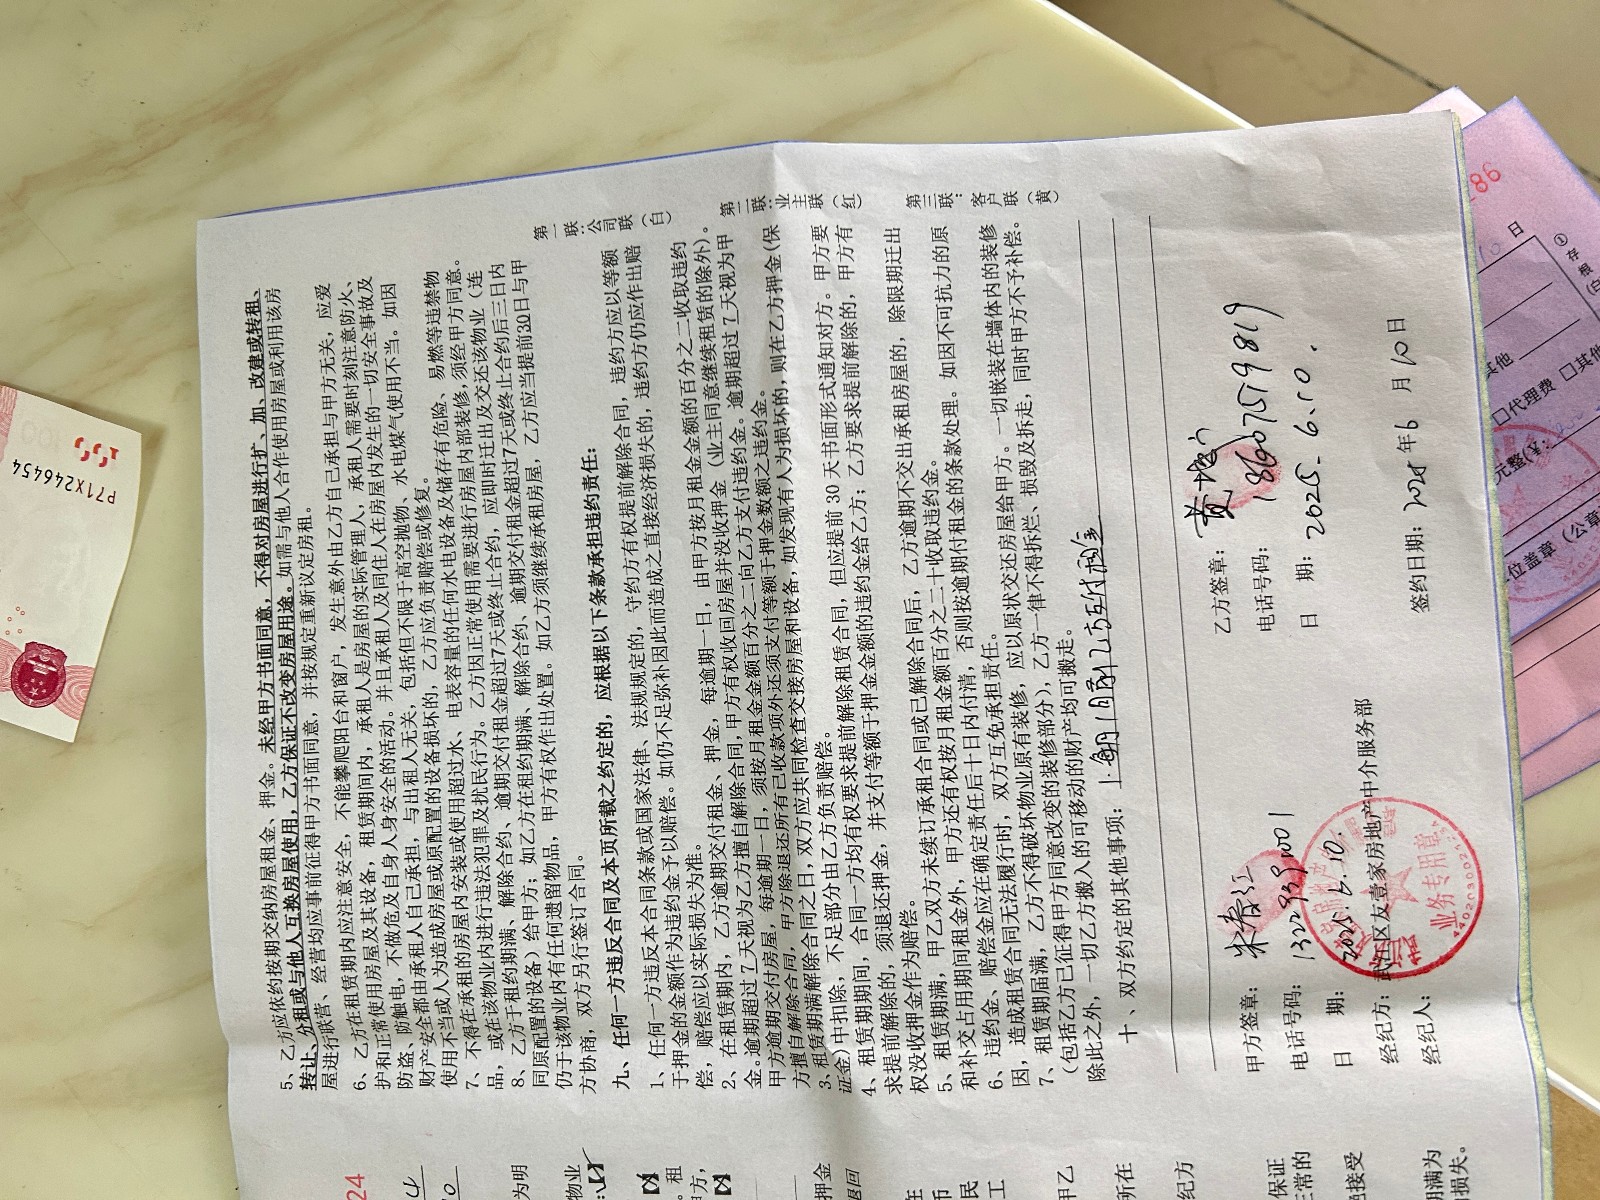 5、乙方应依约按期交纳房屋租金、押金。未经甲方书面同意，不得对房屋进行扩、加、改建或转租、
转让、分租或与他人互换房屋使用，乙方保证不改变房屋用途。如需与他人合作使用房屋或利用该房
屋进行联营、经营均应事前征得甲方书面同意，并按规定重新议定房租。
6、乙方在租赁期内应注意安全，不能攀爬阳台和窗户，发生意外由乙方自己承担与甲方无关，应爱
护和正常使用房屋及其设备，租赁期间内，承租人是房屋的实际管理人，承租人需要时刻注意防火、
防盗、防触电，不做危及自身人身安全的活动。并且承租人及同住人在房屋内发生的一切安全事故及
财产安全都由承租人自己承担，与出租人无关，包括但不限于高空抛物、水电煤气使用不当。如因
使用不当或人为造成房屋或原配置的设备损坏的，乙方应负责赔偿或修复。
7、不得在承租的房屋内安装或使用超过水、电表容量的任何水电设备及储存有危险、易燃等违禁物
品，或在该物业内进行违法犯罪及扰民行为。乙方因正常使用需要进行房屋内部装修，须经甲方同意。
8、乙方于租约期满、解除合约、逾期交付租金超过7天或终止合约，应即时迁出及交还该物业（连
同原配置的设备）给甲方；如乙方在租约期满、解除合约、逾期交付租金超过7天或终止合约后三日内
仍于该物业内有任何遗留物品，甲方有权作出处置。如乙方须继续承租房屋，乙方应当提前30日与甲
方协商，双方另行签订合同。
九、任何一方违反合同及本页所载之约定的，应根据以下条款承担违约责任：
1、任何一方违反本合同条款或国家法律、法规规定的，守约方有权提前解除合同，违约方应以等额
于押金的金额作为违约金予以赔偿。如仍不足弥补因此而造成之直接经济损失的，违约方仍应作出赔
偿，赔偿应以实际损失为准。
2、在租赁期内，乙方逾期交付租金、押金，每逾期一日，由甲方按月租金金额的百分之二收取违约
金。逾期超过7天视为乙方擅自解除合同，甲方有权收回房屋并没收押金（业主同意继续租赁的除外）。
甲方逾期交付房屋，每逾期一日，须按月租金金额百分之二向乙方支付违约金。逾期超过7天视为甲
方擅自解除合同，甲方除退还所有已收款项外还须支付等额于押金数额之违约金。
3、租赁期满解除合同之日，双方应共同检查交接房屋和设备，如发现有人为损坏的，则在乙方押金(保
证金)中扣除，不足部分由乙方负责赔偿。
4、租赁期间，合同一方均有权要求提前解除租赁合同，但应提前30天书面形式通知对方。甲方要
求提前解除的，须退还押金，并支付等额于押金金额的违约金给乙方；乙方要求提前解除的，甲方有
权没收押金作为赔偿。
5、租赁期满，甲乙双方未续订承租合同或已解除合同后，乙方逾期不交出承租房屋的，除限期迁出
和补交占用期间租金外，甲方还有权按月租金额百分之二十收取违约金。
6、违约金、赔偿金应在确定责任后十日内付清，否则按逾期付租金的条款处理。如因不可抗力的原
因，造成租赁合同无法履行时，双方互免承担责任。
7、租赁期届满，乙方不得破坏物业原有装修，应以原状交还房屋给甲方。一切嵌装在墙体内的装修
（包括乙方已征得甲方同意改变的装修部分），乙方一律不得拆烂、损毁及拆走，同时甲方不予补偿。
除此之外，一切乙方搬入的可移动的财产均可搬走。
十、双方约定的其他事项：
第一联：公司联（白）
第二联：业主联（红）
第三联：客户联（黄）
甲方签章：
电话号码：
日 期：2025.6.10.
经纪方：武江区友壹家房地产中介服务部
经纪人：
乙方签章：
电话号码：18607519819
日 期：2025.6.10.
签约日期：2025年6月10日
业务专用章
P71X246454
100
24
86
日
①存根
其他
□代理费 □其他
元整(¥:
位盖章（公章
为明
物业
租
押金
退回
甲乙
所在
纪方
保证
正常的
接受
期满为
损失。